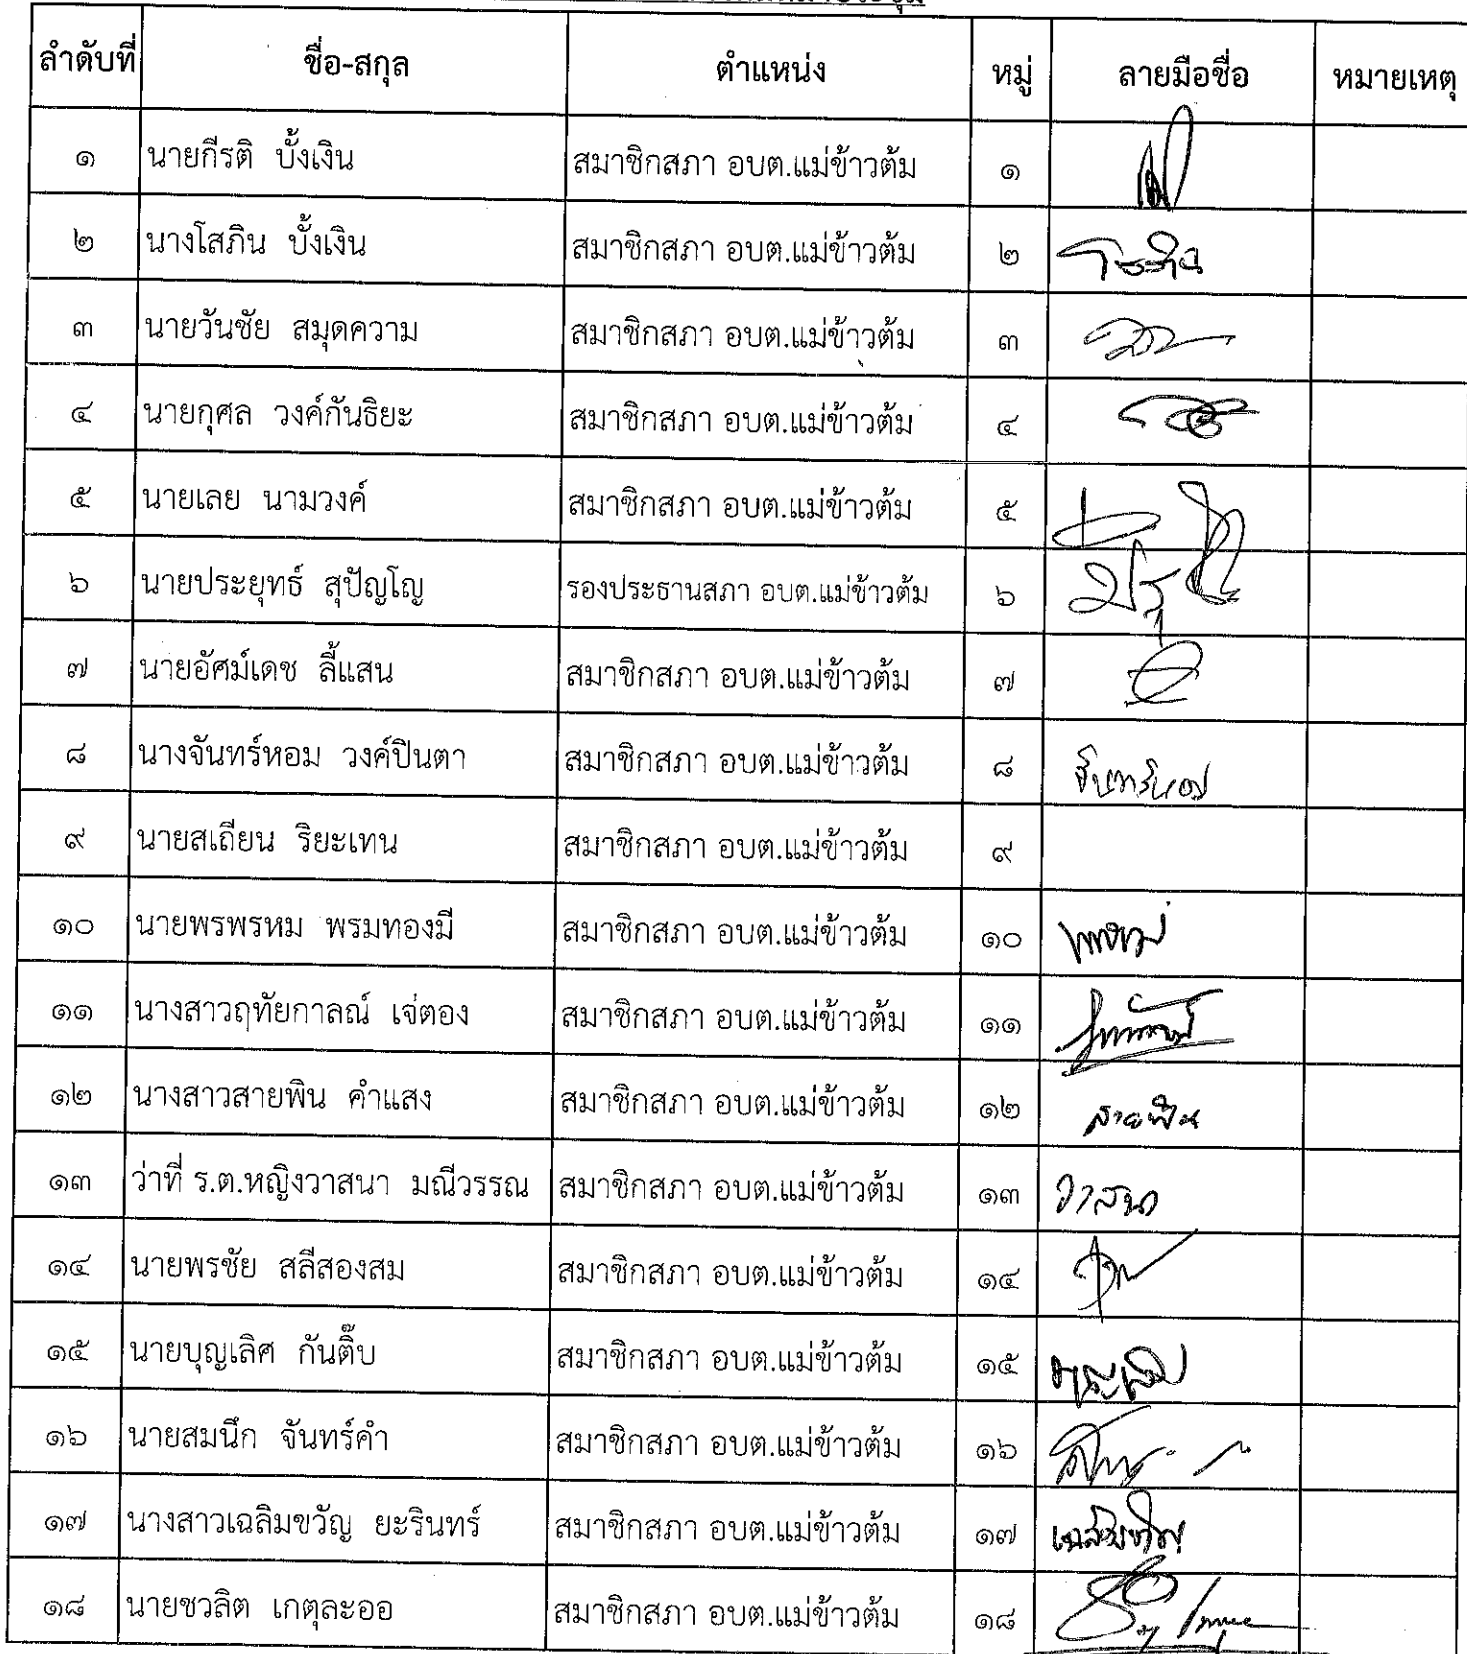 ลำดับที่ ชื่อ-สกุล ตำแหน่ง หมู่ ลายมือชื่อ หมายเหตุ
๑ นายกีรติ บั้งเงิน สมาชิกสภา อบต.แม่ข้าวต้ม ๑
๒ นางโสภิน บั้งเงิน สมาชิกสภา อบต.แม่ข้าวต้ม ๒ โสภิน
๓ นายวันชัย สมุดความ สมาชิกสภา อบต.แม่ข้าวต้ม ๓
๔ นายกุศล วงค์กันธิยะ สมาชิกสภา อบต.แม่ข้าวต้ม ๔
๕ นายเลย นามวงค์ สมาชิกสภา อบต.แม่ข้าวต้ม ๕
๖ นายประยุทธ์ สุปัญโญ รองประธานสภา อบต.แม่ข้าวต้ม ๖
๗ นายอัศม์เดช ลี้แสน สมาชิกสภา อบต.แม่ข้าวต้ม ๗
๘ นางจันทร์หอม วงค์ปินตา สมาชิกสภา อบต.แม่ข้าวต้ม ๘ จันทร์หอม
๙ นายสเถียน ริยะเทน สมาชิกสภา อบต.แม่ข้าวต้ม ๙
๑๐ นายพรพรหม พรมทองมี สมาชิกสภา อบต.แม่ข้าวต้ม ๑๐
๑๑ นางสาวฤทัยกาลณ์ เจ่ตอง สมาชิกสภา อบต.แม่ข้าวต้ม ๑๑
๑๒ นางสาวสายพิน คำแสง สมาชิกสภา อบต.แม่ข้าวต้ม ๑๒ สายพิน
๑๓ ว่าที่ ร.ต.หญิงวาสนา มณีวรรณ สมาชิกสภา อบต.แม่ข้าวต้ม ๑๓ วาสนา
๑๔ นายพรชัย สลีสองสม สมาชิกสภา อบต.แม่ข้าวต้ม ๑๔
๑๕ นายบุญเลิศ กันติ๊บ สมาชิกสภา อบต.แม่ข้าวต้ม ๑๕ บุญเลิศ
๑๖ นายสมนึก จันทร์คำ สมาชิกสภา อบต.แม่ข้าวต้ม ๑๖
๑๗ นางสาวเฉลิมขวัญ ยะรินทร์ สมาชิกสภา อบต.แม่ข้าวต้ม ๑๗ เฉลิมขวัญ
๑๘ นายชวลิต เกตุละออ สมาชิกสภา อบต.แม่ข้าวต้ม ๑๘